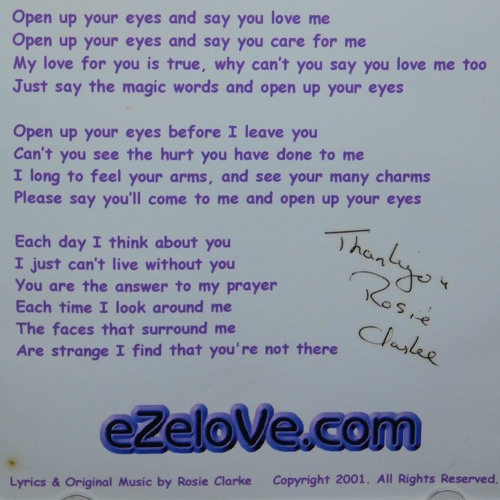 Open up your eyes and say you love me
Open up your eyes and say you care for me
My love for you is true, why can't you say you love me too
Just say the magic words and open up your eyes
Open up your eyes before I leave you
Can't you see the hurt you have done to me
I long to feel your arms, and see your many charms
Please say you'll come to me and open up your eyes
Each day I think about you
I just can't live without you
You are the answer to my prayer
Each time I look around me
The faces that surround me
Are strange I find that you're not there
Thankyou
Rosie
Clarke
eZeloVe.com
Lyrics & Original Music by Rosie Clarke Copyright 2001. All Rights Reserved.